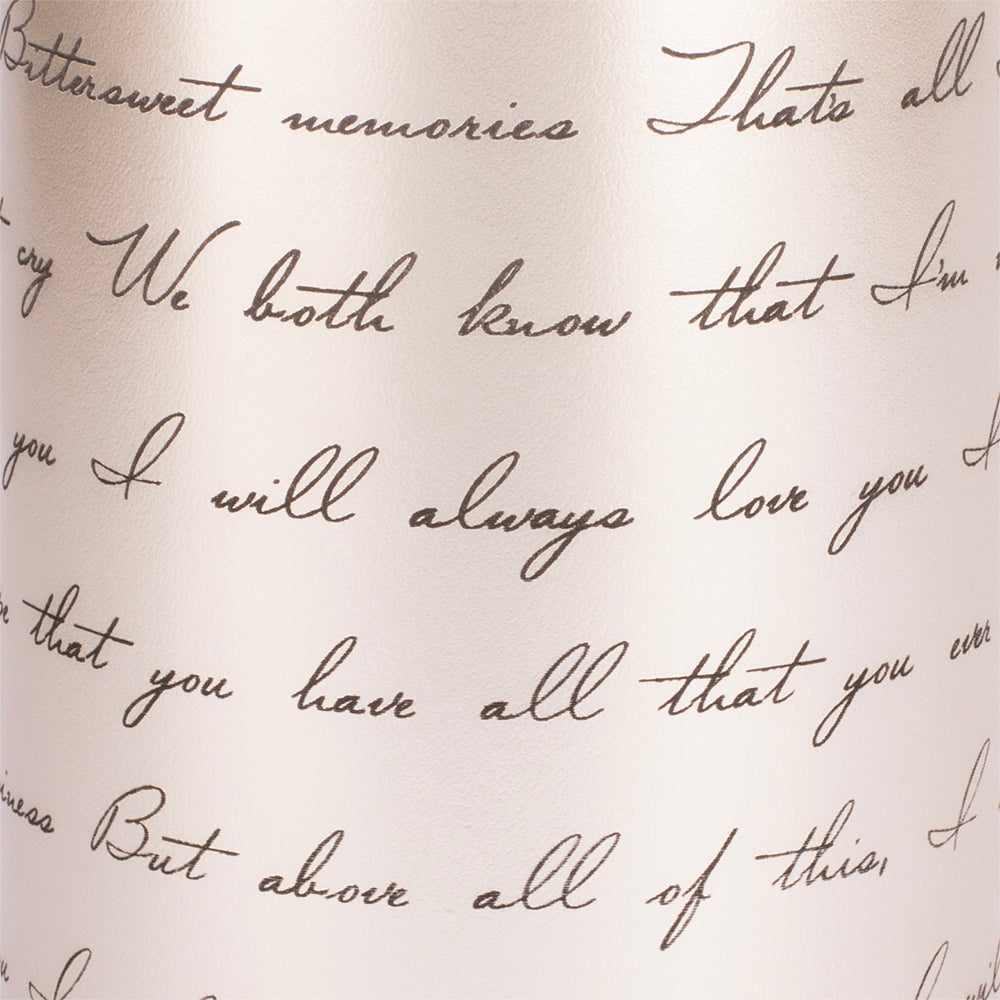 Bittersweet memories That's all
cry We both know that I'm
you I will always love you I
that you have all that you ever
But above all of this, I
I